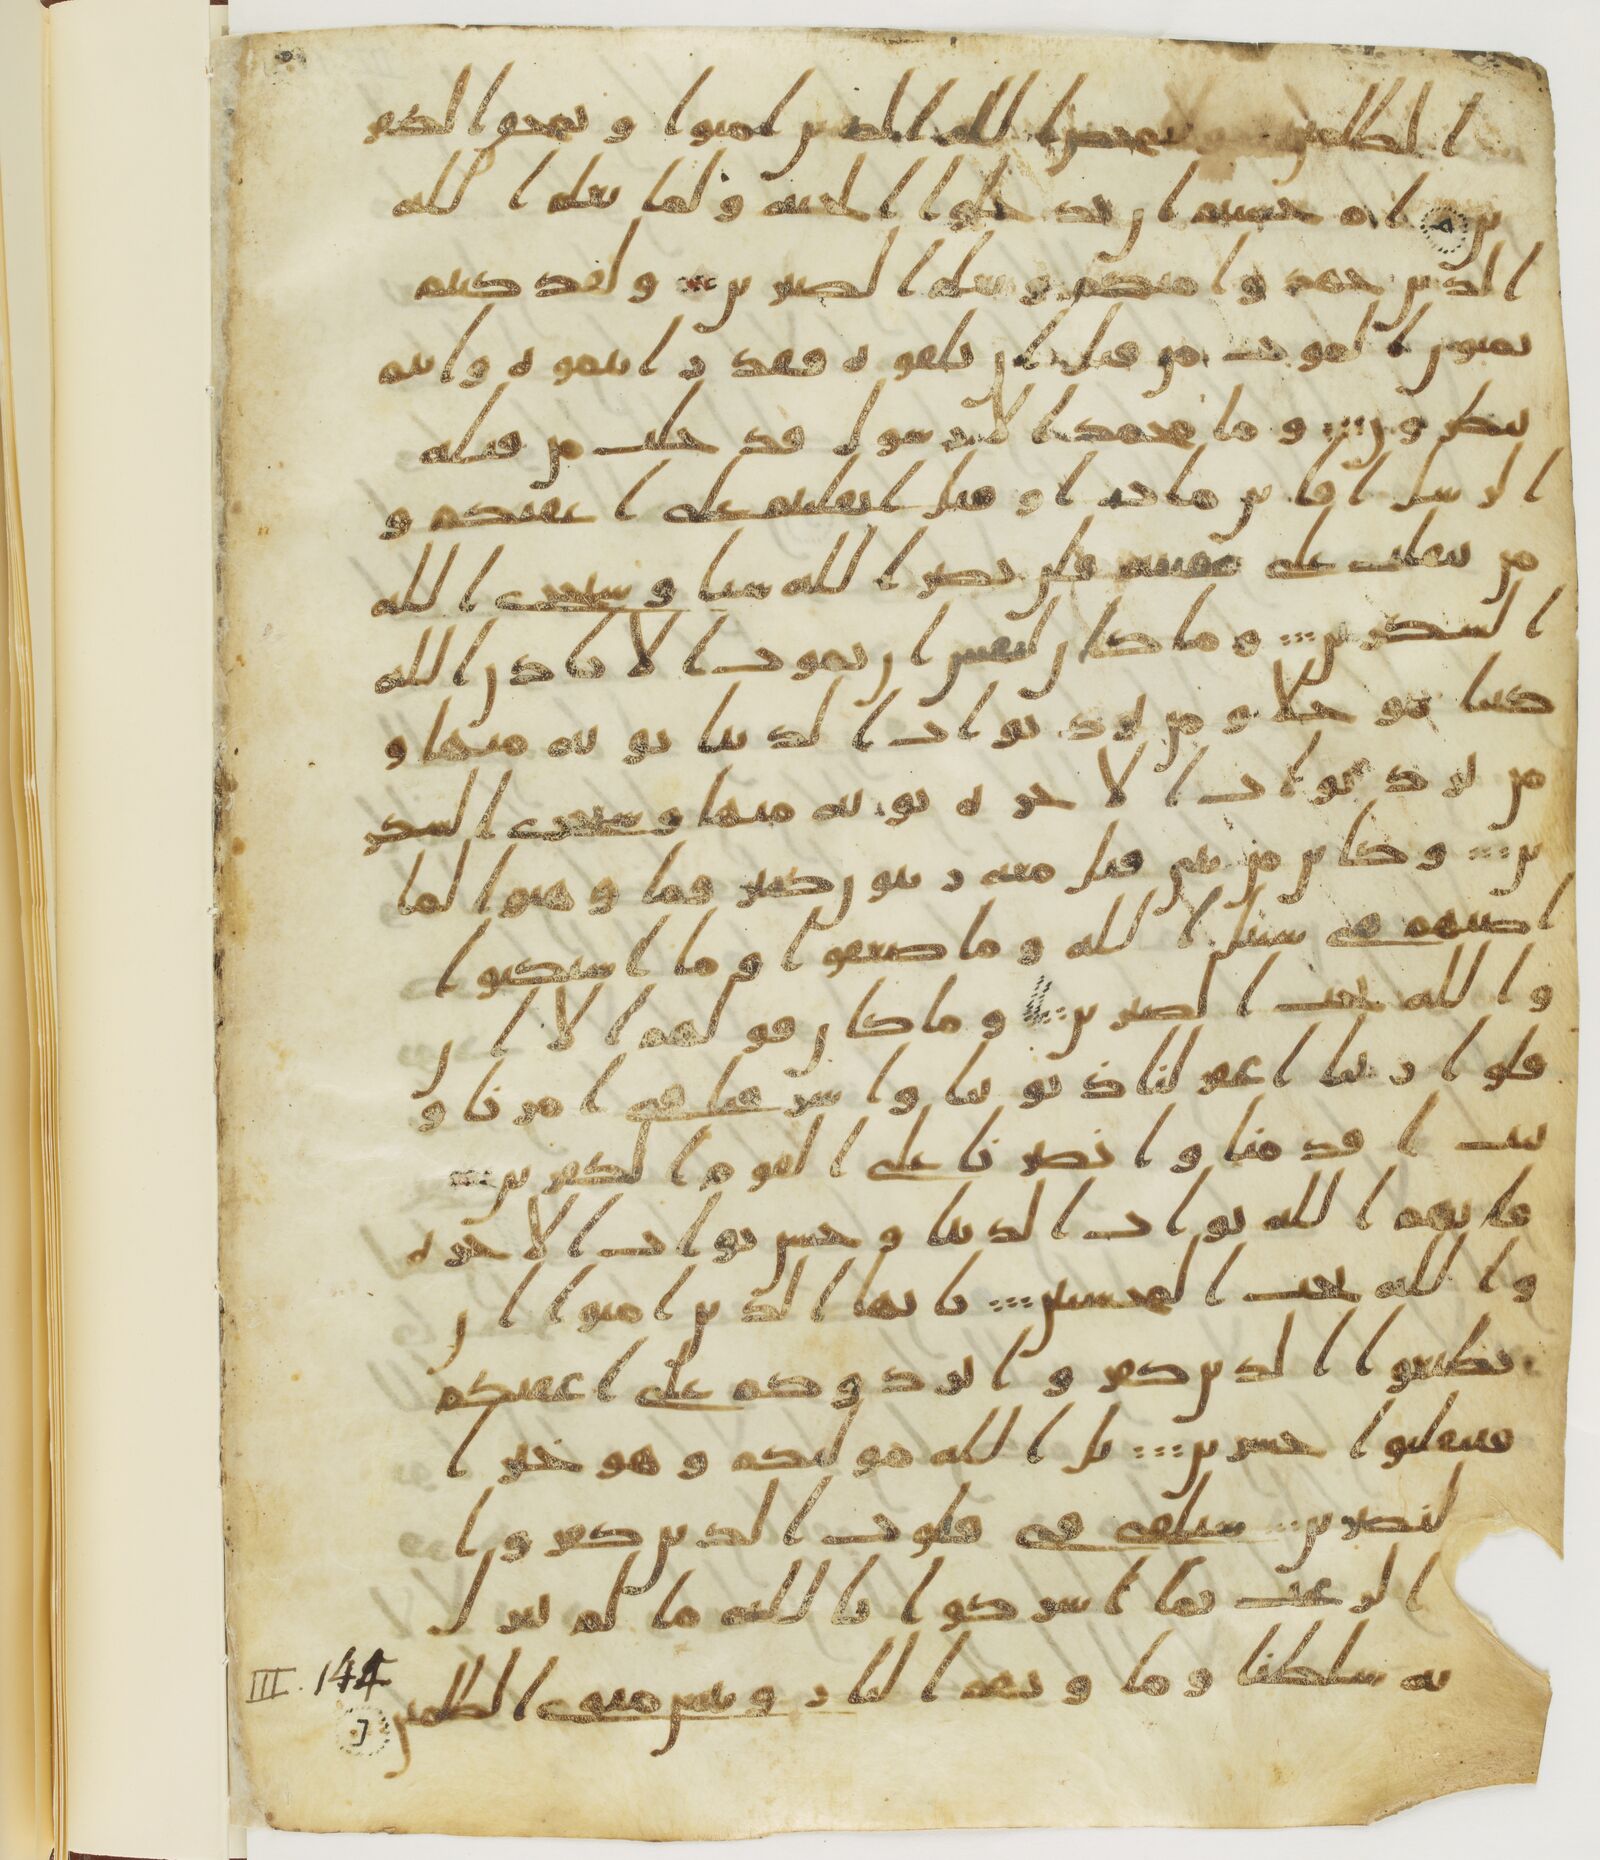 الظلمين وليمحص الله الذين امنوا ويمحق الكفر
ين ام حسبتم ان تدخلوا الجنة ولما يعلم الله
الذين جهدوا منكم ويعلم الصبرين ولقد كنتم
تمنون الموت من قبل ان تلقوه فقد رايتموه وانتم
تنظرون وما محمد الا رسول قد خلت من قبله
الرسل افاين مات او قتل انقلبتم على اعقبكم و
من ينقلب على عقبيه فلن يضر الله شيا وسيجزى الله
الشكرين وما كان لنفس ان تموت الا باذن الله
كتبا موجلا ومن يرد ثواب الدنيا نوته منها و
من يرد ثواب الاخرة نوته منها وسنجزى الشكر
ين وكاين من نبى قتل معه ربيون كثير فما وهنوا لما
اصبهم فى سبيل الله وما ضعفوا وما استكنوا
والله يحب الصبرين وما كان قولهم الا ان
قلوا ربنا اغفر لنا ذنوبنا واسرفنا فى امرنا و
ثبت اقدمنا وانصرنا على القوم الكفرين
فاتيهم الله ثواب الدنيا وحسن ثواب الاخرة
والله يحب المحسنين يايها الذين امنوا ان
تطيعوا الذين كفروا يردوكم على اعقبكم
فتنقلبوا خسرين بل الله موليكم وهو خير ا
لنصرين سنلقى فى قلوب الذين كفروا
الرعب بما اشركوا بالله ما لم ينزل
به سلطنا وماويهم النار وبئس مثوى الظلمين
III. 144